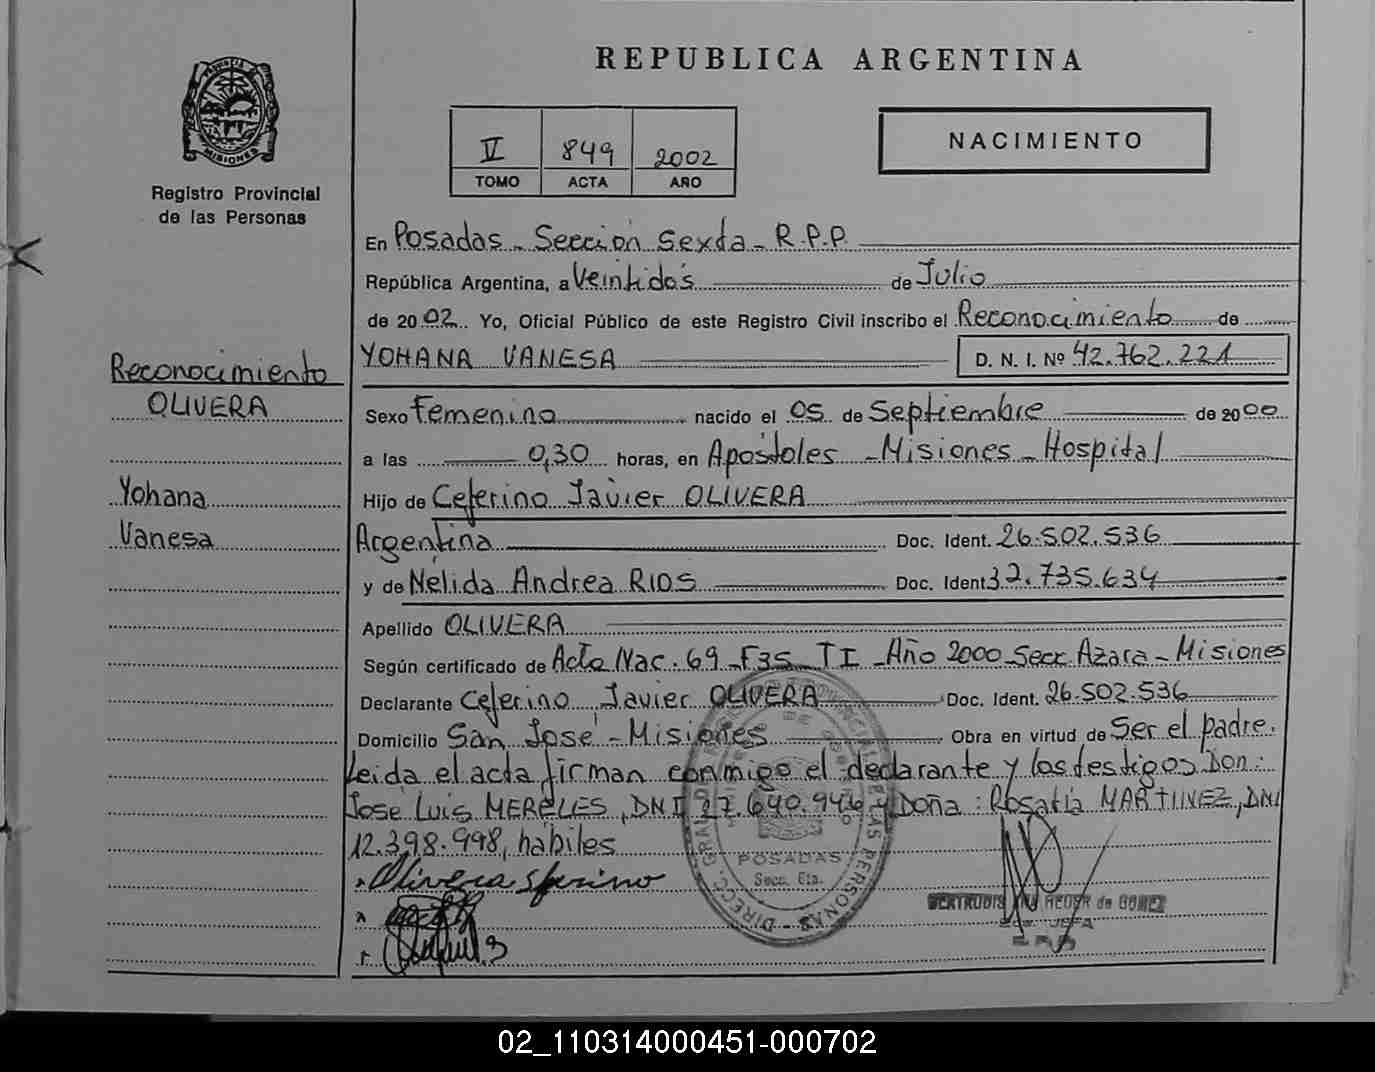 REPUBLICA ARGENTINA
MISIONES
Registro Provincial
de las Personas
V 849 2002
TOMO ACTA AÑO
NACIMIENTO
En Posadas - Sección Sexta - R.P.P.
República Argentina, a Veintidós de Julio
de 2002. Yo, Oficial Público de este Registro Civil inscribo el Reconocimiento de
YOHANA VANESA D. N. I. Nº 42.762.221
Reconocimiento
OLIVERA
Yohana
Vanesa
Sexo Femenino nacido el 05 de Septiembre de 2000
a las 0,30 horas, en Apóstoles - Misiones - Hospital
Hijo de Ceferino Javier OLIVERA
Argentina Doc. Ident. 26.502.536
y de Nélida Andrea RIOS Doc. Ident 32.735.634
Apellido OLIVERA
Según certificado de Acta Nac. 69 - F35 TI - Año 2000 Secc. Azara - Misiones
Declarante Ceferino Javier OLIVERA Doc. Ident. 26.502.536
Domicilio San José - Misiones Obra en virtud de Ser el padre.
Leida el acta firman conmigo el declarante y los testigos Don:
José Luis MERELES, DNI 27.640.946 y Doña: Rosalía MARTINEZ, DNI
12.398.998, hábiles
Olivera
POSADAS
Secc. 6ta.
GERTRUDIS de GOMEZ
JEFA
02_110314000451-000702